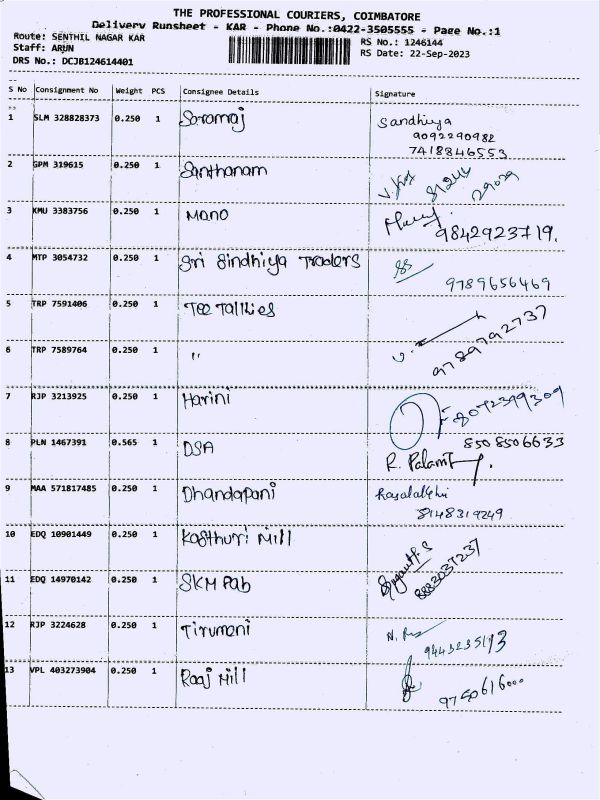 THE PROFESSIONAL COURIERS, COIMBATORE
Delivery Runsheet - KAR - Phone No.:0422-3505555 - Page No.:1
Route: SENTHIL NAGAR KAR
RS No.: 1246144
Staff: ARUN
RS Date: 22-Sep-2023
DRS No.: DCJB124614401
S No Consignment No Weight PCS Consignee Details Signature
1 SLM 328828373 0.250 1 Sandhiya
9092290982
7418846553
2 GPM 319615 0.250 1 Santhanam
3 KMU 3383756 0.250 1 Mano 9842923719.
4 MTP 3054732 0.250 1 Sri Sindhiya Traders
9789656469
5 TRP 7591406 0.250 1 Tee Tallies
6 TRP 7589764 0.250 1 " 9789792737
7 RJP 3213925 0.250 1 Harini
8 PLN 1467391 0.565 1 DSA 8508506633
9 MAA 571817485 0.250 1 Dhandapani
8148319249
10 EDQ 10901449 0.250 1 Kasthuri Mill
11 EDQ 14970142 0.250 1 SKM Fab 8883037237
12 RJP 3224628 0.250 1 Tirumani
13 VPL 403273904 0.250 1 Raaj Mill